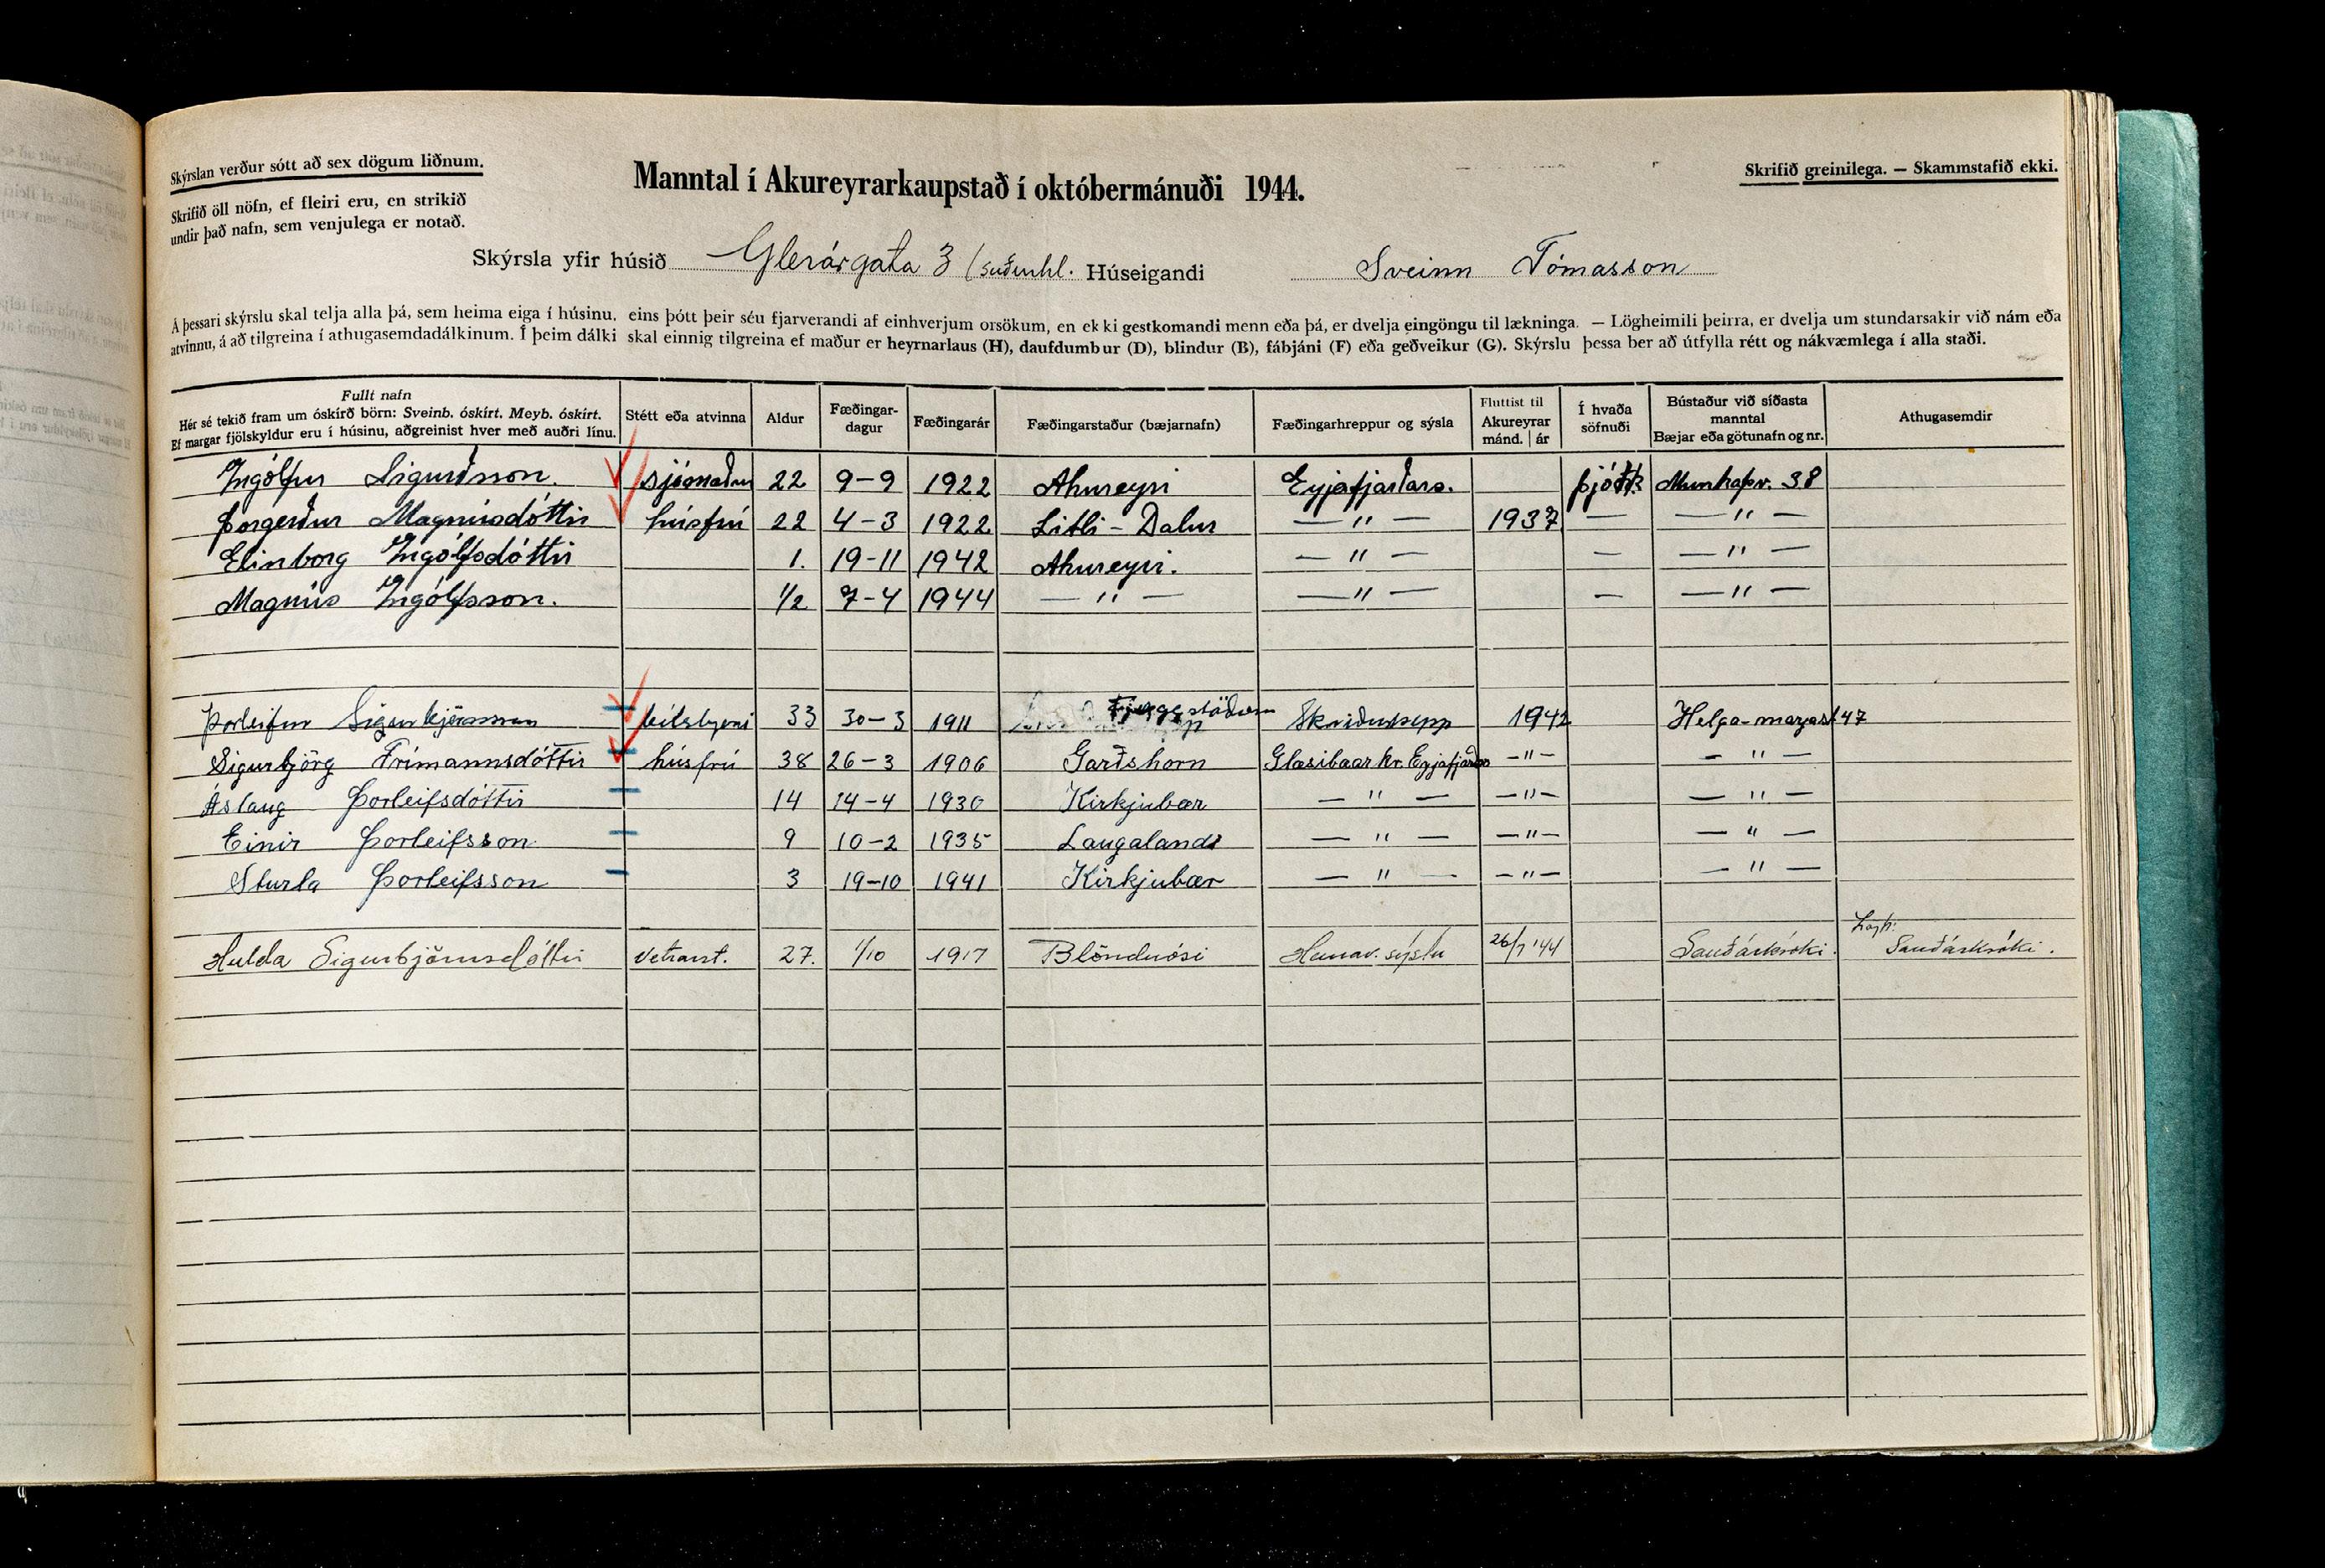 Skýrslan verður sótt að sex dögum liðnum.
Skrifið öll nöfn, ef fleiri eru, en strikið
undir það nafn, sem venjulega er notað.
Manntal í Akureyrarkaupstað í októbermánuði 1944.
Skrifið greinilega. — Skammstafið ekki.
Skýrsla yfir húsið Glerárgata 3 (suðurhl. Húseigandi Sveinn Tómasson
Á þessari skýrslu skal telja alla þá, sem heima eiga í húsinu, eins þótt þeir séu fjarverandi af einhverjum orsökum, en ekki gestkomandi menn eða þá, er dvelja eingöngu til lækninga. — Lögheimili þeirra, er dvelja um stundarsakir við nám eða
atvinnu, á að tilgreina í athugasemdadálkinum. Í þeim dálki skal einnig tilgreina ef maður er heyrnarlaus (H), daufdumbur (D), blindur (B), fábjáni (F) eða geðveikur (G). Skýrslu þessa ber að útfylla rétt og nákvæmlega í alla staði.
Fullt nafn
Hér sé tekið fram um óskírð börn: Sveinb. óskírt. Meyb. óskírt.
Ef margar fjölskyldur eru í húsinu, aðgreinist hver með auðri línu.
Stétt eða atvinna
Aldur
Fæðingar-
dagur
Fæðingarár
Fæðingarstaður (bæjarnafn)
Fæðingarhreppur og sýsla
Fluttist til
Akureyrar
mánd. | ár
Í hvaða
söfnuði
Bústaður við síðasta
manntal
Bæjar eða götunafn og nr.
Athugasemdir
Ingólfur Sigurðsson. sjómaður 22 9-9 1922 Akureyri Eyjafjarðars. þjóðk. Munkaþv. 38
Þorgerður Magnúsdóttir húsfrú 22 4-3 1922 Litli-Dalur — " — 1937 — — " —
Elinborg Ingólfsdóttir 1. 19-11 1942 Akureyri. — " — — — " —
Magnús Ingólfsson. 1/2 7-4 1944 — " — — " — — — " —
Þorleifur Sigurbjörnsson bílstjóri 33 30-3 1911 Skriðuhrepp 1942 Helga-magrast 47
Sigurbjörg Frímannsdóttir húsfrú 38 26-3 1906 Garðshorn Glæsibæarhr. Eyjafjarðar — " — — " —
Áslaug Þorleifsdóttir 14 14-4 1930 Kirkjubær — " — — " — — " —
Einir Þorleifsson 9 10-2 1935 Laugalandi — " — — " — — " —
Sturla Þorleifsson 3 19-10 1941 Kirkjubær — " — — " — — " —
Hulda Sigurbjörnsdóttir Vetrarst. 27. 1/10 1917 Blönduósi Húnav. sýslu 26/9 '44 Sauðárkróki. Sauðárkróki.